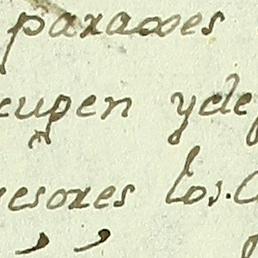 paraxes
cupen yde
resores los.